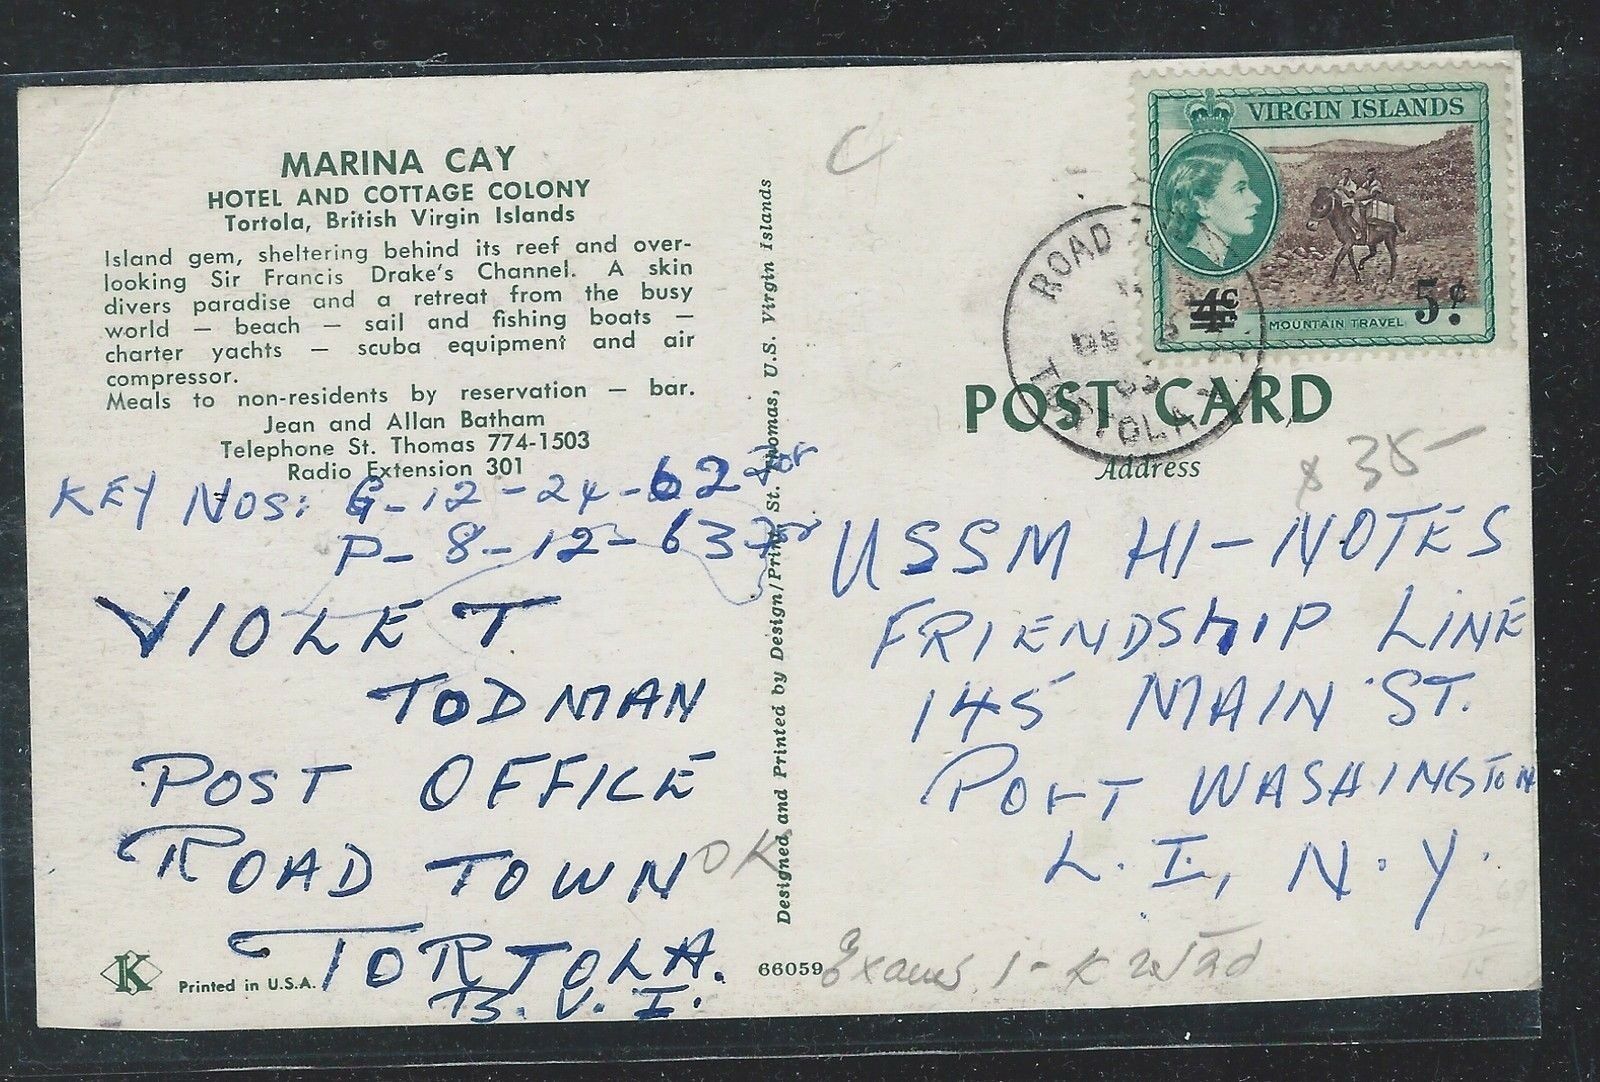 MARINA CAY
HOTEL AND COTTAGE COLONY
Tortola, British Virgin Islands
Island gem, sheltering behind its reef and over-
looking Sir Francis Drake's Channel. A skin
divers paradise and a retreat from the busy
world — beach — sail and fishing boats —
charter yachts — scuba equipment and air
compressor.
Meals to non-residents by reservation — bar.
Jean and Allan Batham
Telephone St. Thomas 774-1503
Radio Extension 301
KEY NOS: G-12-24-62 for
P-8-12-63 for
VIOLET
TODMAN
POST OFFICE
ROAD TOWN
TORTOLA.
B.V.I.
OK
K
Printed in U.S.A.
Designed and Printed by Design/Print, St. Thomas, U.S. Virgin Islands
66059
C
VIRGIN ISLANDS
4¢
5¢
MOUNTAIN TRAVEL
ROAD TOWN
TORTOLA
POST CARD
Address
$ 35-
USSM HI-NOTES
FRIENDSHIP LINE
145 MAIN ST.
PORT WASHINGTON
L.I, N.Y.